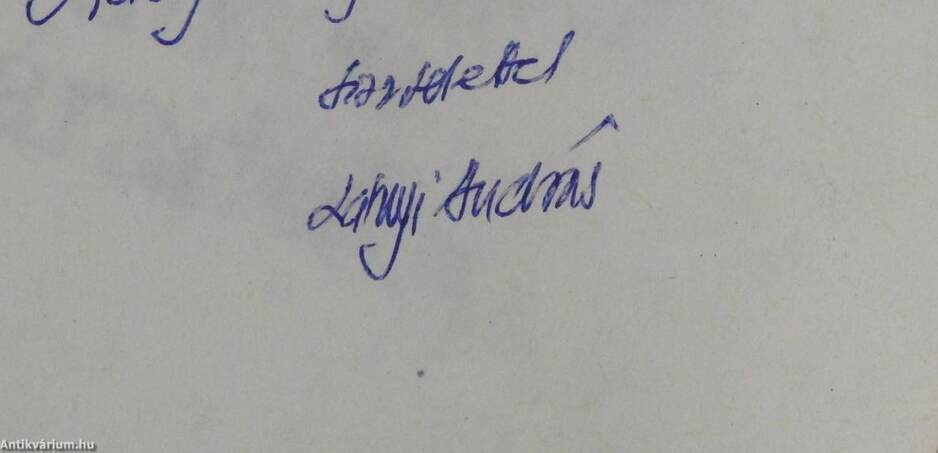 szeretettel
Lányi András
Antikvárium.hu